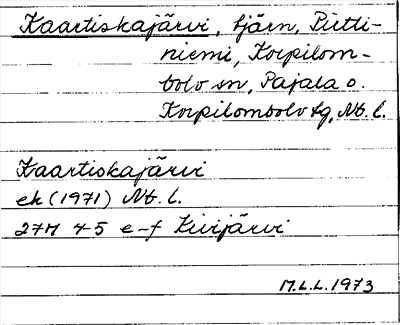 Kaartiskajärvi, tjärn, Pirtti-
niemi, Korpilom-
bolo sn, Pajala o.
Korpilombolo tg, Nb. l.
Kaartiskajärvi
ek (1971) Nb. l.
27M 4-5 e-f Kivijärvi
M.L.L. 1973